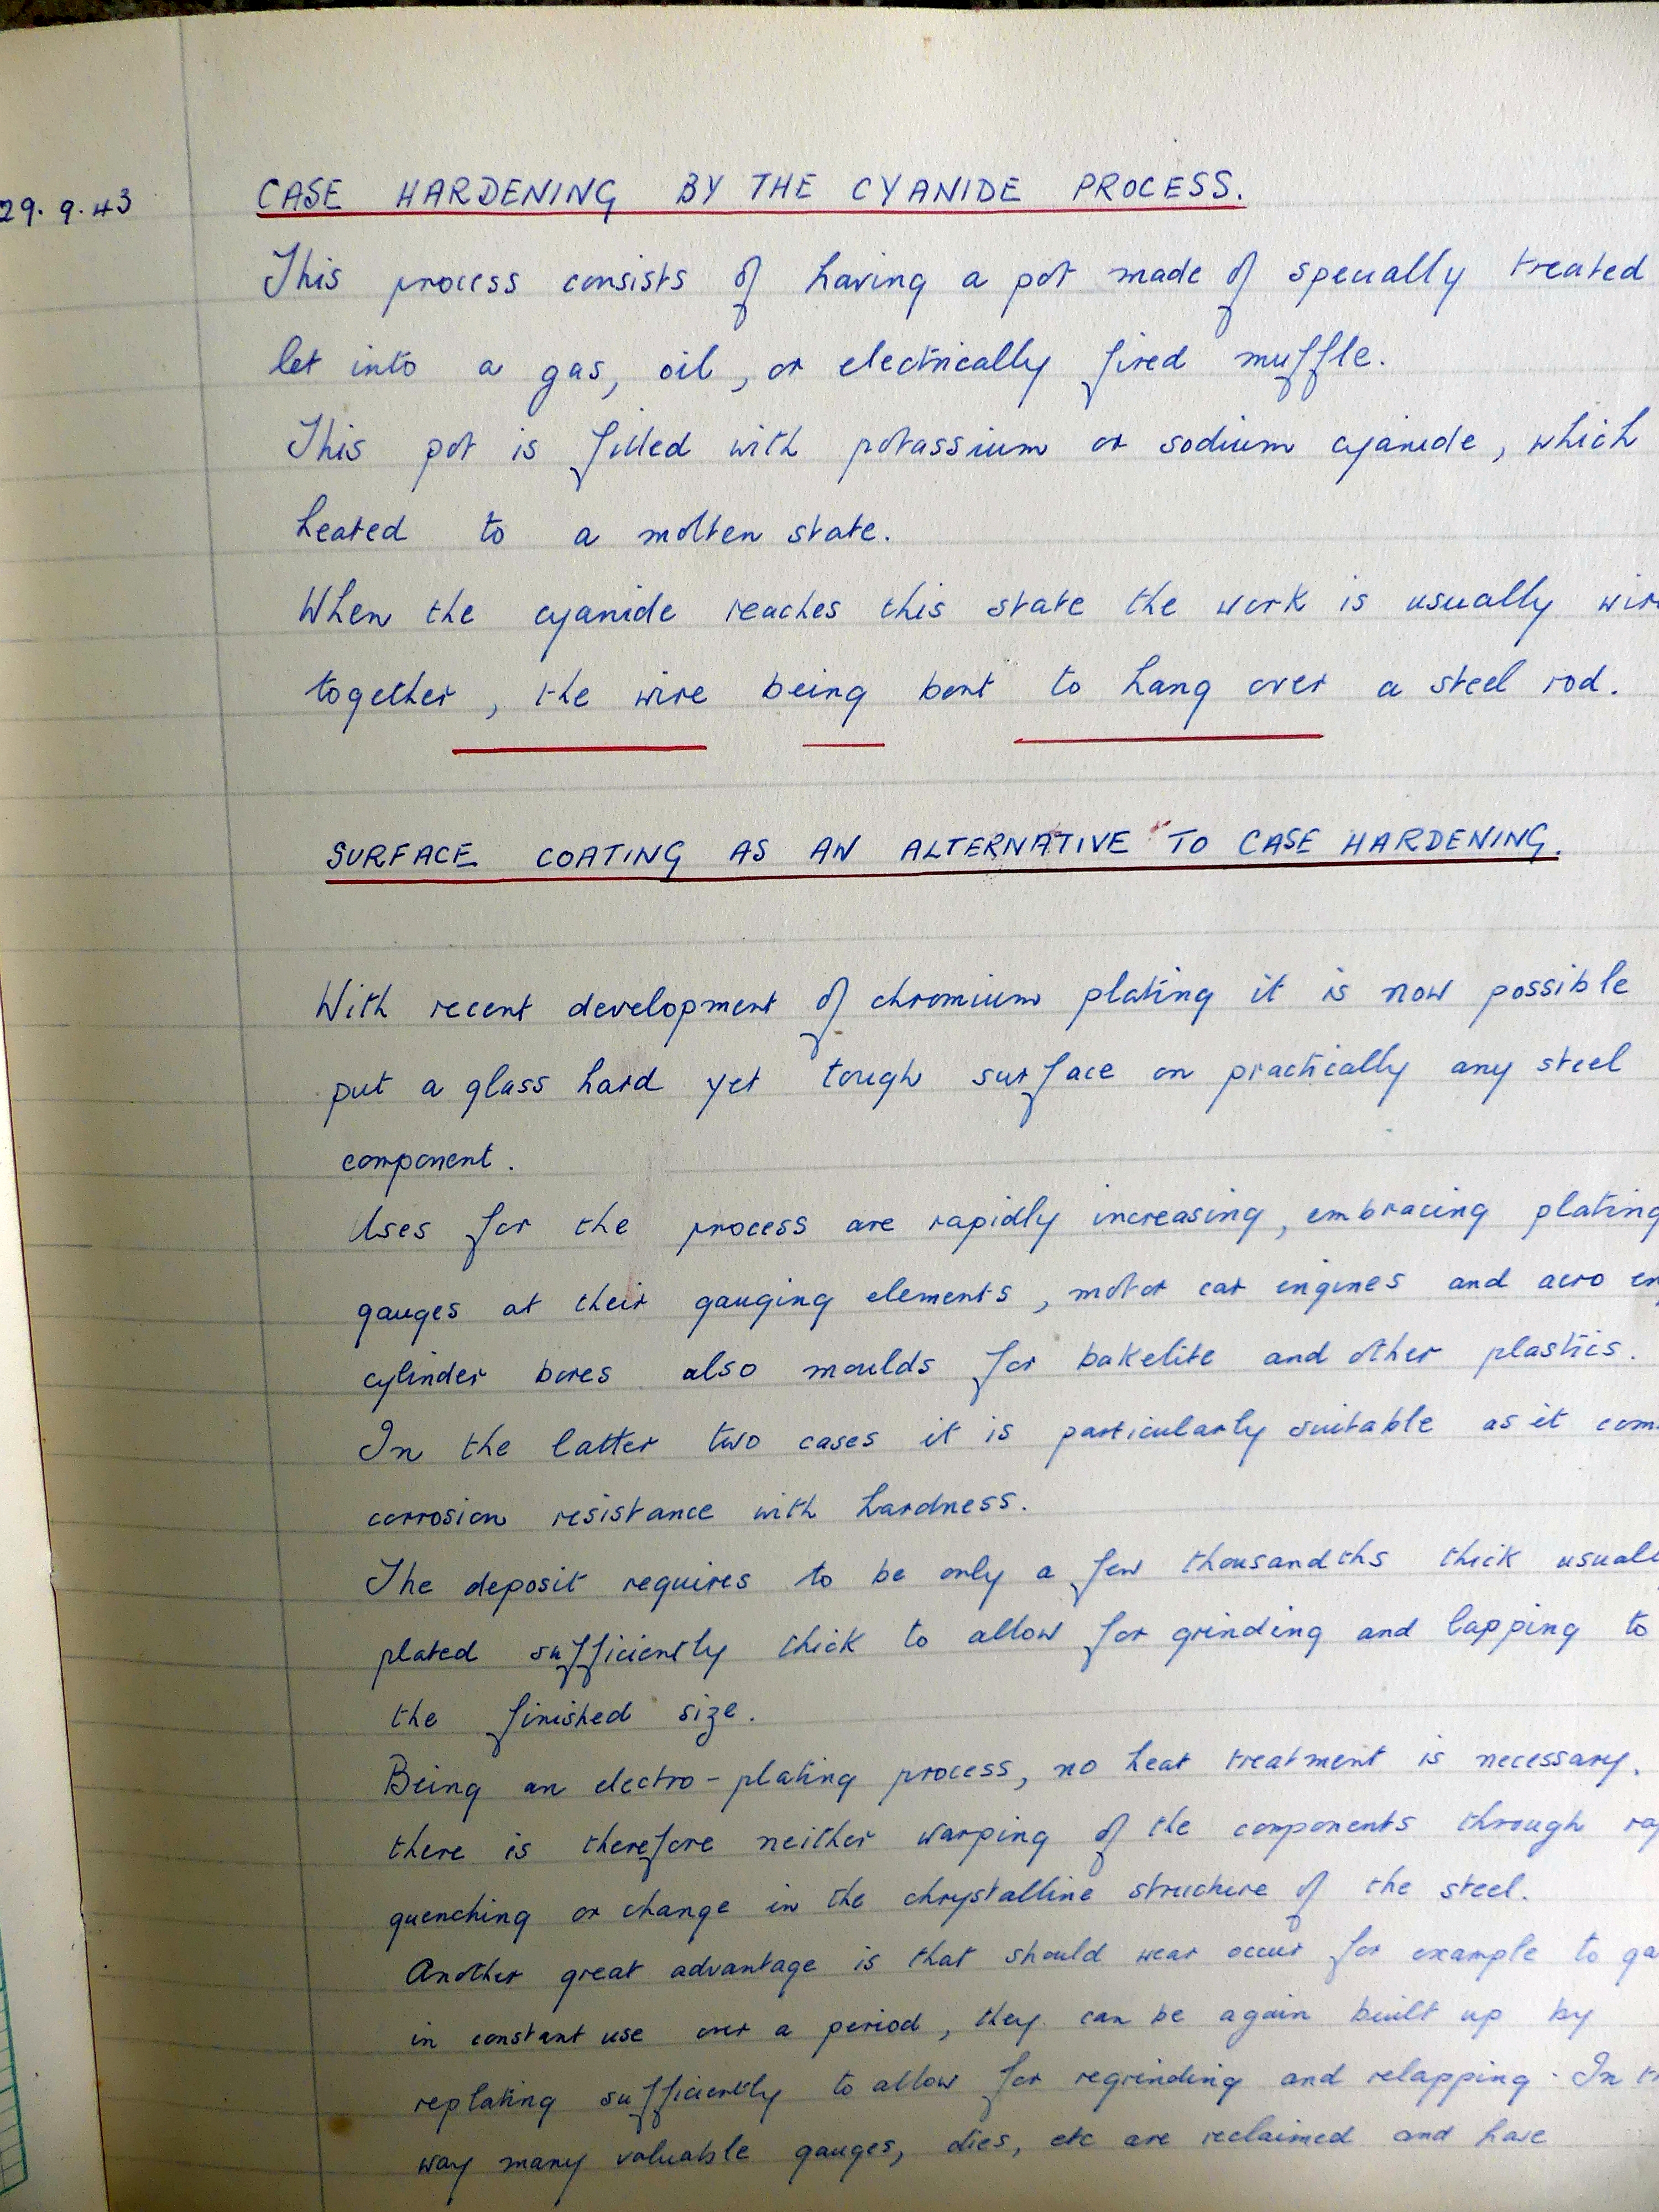 29.9.43
CASE HARDENING BY THE CYANIDE PROCESS.
This process consists of having a pot made of specially treated
let into a gas, oil, or electrically fired muffle.
This pot is filled with potassium or sodium cyanide, which
heated to a molten state.
When the cyanide reaches this state the work is usually wir
together, the wire being bent to hang over a steel rod.
SURFACE COATING AS AN ALTERNATIVE TO CASE HARDENING.
With recent development of chromium plating it is now possible
put a glass hard yet tough surface on practically any steel
component.
Uses for the process are rapidly increasing, embracing plating
gauges at their gauging elements, motor car engines and aero en
cylinder bores also moulds for bakelite and other plastics.
In the latter two cases it is particularly suitable as it com
corrosion resistance with hardness.
The deposit requires to be only a few thousandths thick usuall
plated sufficiently thick to allow for grinding and lapping to
the finished size.
Being an electro-plating process, no heat treatment is necessary.
there is therefore neither warping of the components through ra
quenching or change in the chrystalline structure of the steel.
Another great advantage is that should wear occur for example to ga
in constant use over a period, they can be again built up by
replating sufficiently to allow for regrinding and relapping. In th
way many valuable gauges, dies, etc are reclaimed and have